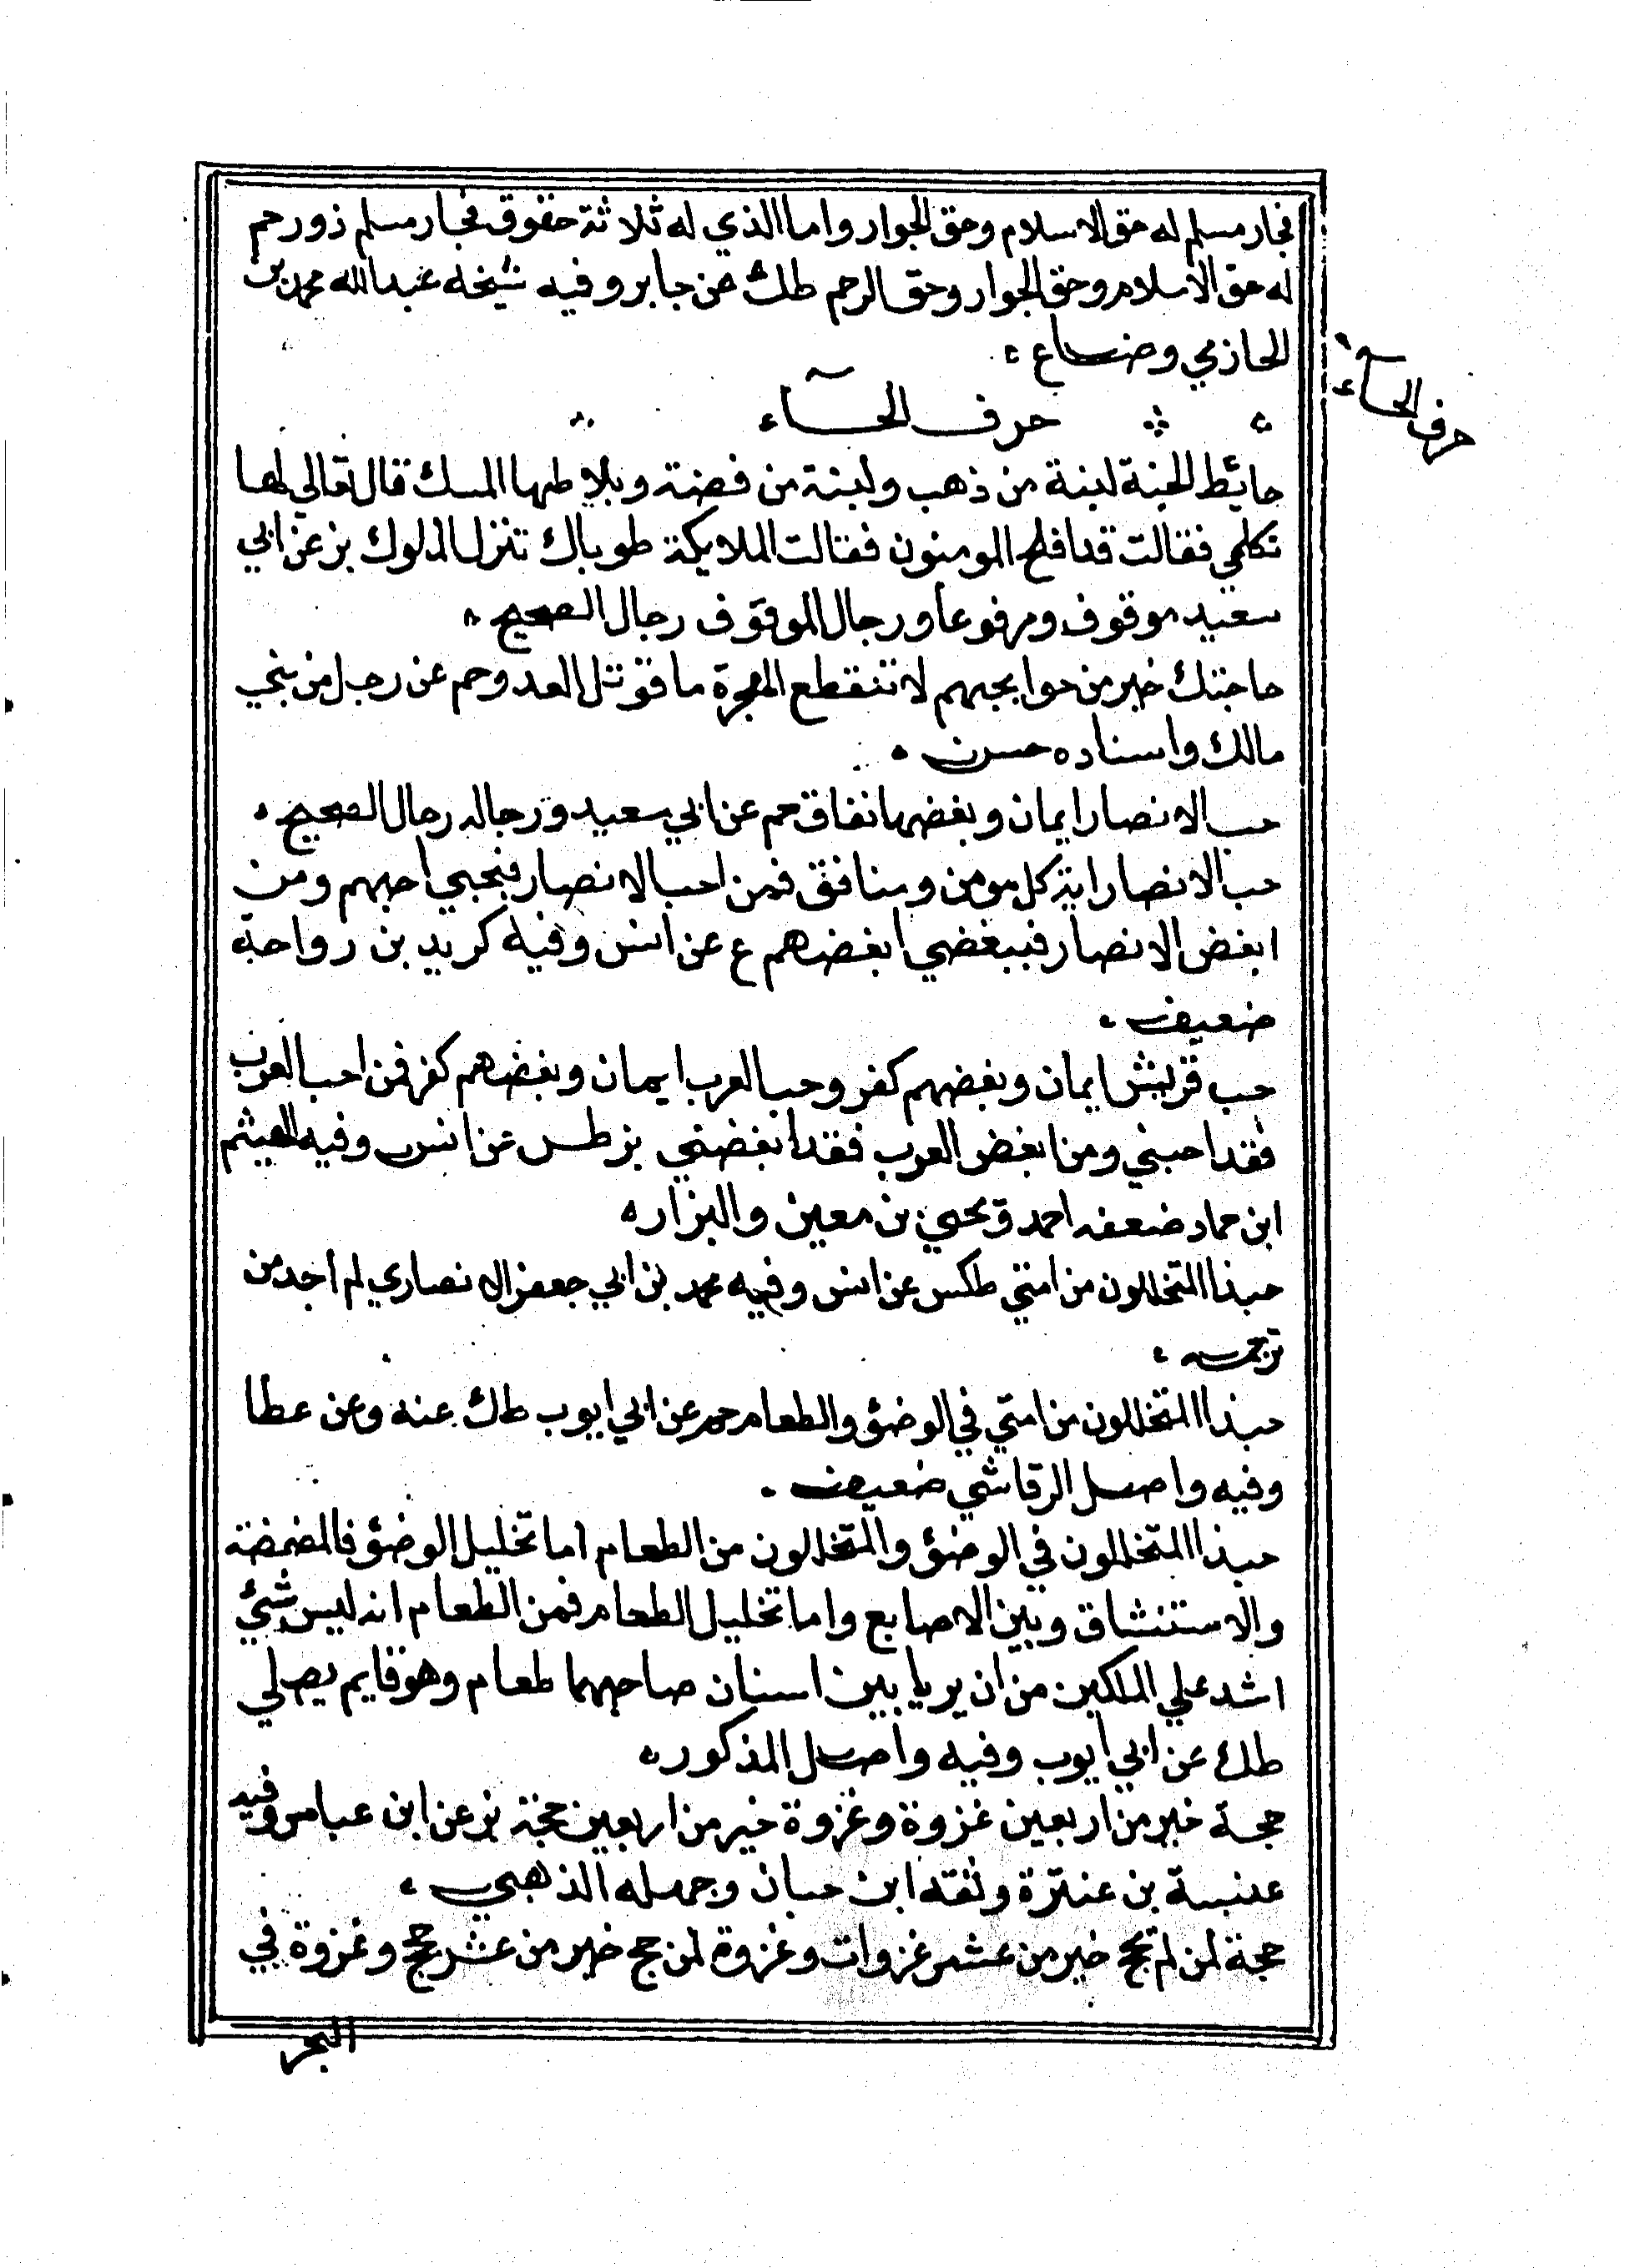 فجار مسلم له حق الاسلام وحق الجوار واما الذي له ثلاثة حقوق فجار مسلم ذو رحم
له حق الاسلام وحق الجوار وحق الرحم طك عن جابر وفيه شيخه عبدالله محمد بن
الحازمي وضاع
حرف الحآء
حرف الحآء
حايط الجنة لبنة من ذهب ولبنة من فضة وبلاطها المسك قال تعالي لها
تكلمي فقالت قد افلح المومنون فقالت الملايكة طوباك تنزل الملوك بز عن ابي
سعيد موقوف ومرفوعا ورجال الموقوف رجال الصحيح
حاجتك خير من حوايجهم لا تنقطع الهجرة ما قوتل العدو حم عن رجل من بني
مالك واسناده حسن
حب الانصار ايمان وبغضها نفاق حم عن ابي سعيد ورجاله رجال الصحيح
حب الانصار اية كل مومن ومنافق فمن احب الانصار فبحبي احبهم ومن
ابغض الانصار فببغضي ابغضهم ع عن انس وفيه كريد بن رواحة
ضعيف
حب قريش ايمان وبغضهم كفر وحب العرب ايمان وبغضهم كفر فمن احب العرب
فقد احبني ومن ابغض العرب فقد ابغضني بز طس عن انس وفيه الهيثم
ابن حماد ضعفه احمد ويحيي بن معين والبزار
حبذا المتخللون من امتي طكس عن انس وفيه محمد بن ابي جعفر الانصاري لم اجد من
ترجمه
حبذا المتخللون من امتي في الوضؤ والطعام حم عن ابي ايوب طك عنه وعن عطا
وفيه واصل الرقاشي ضعيف
حبذا المتخللون في الوضؤ والمتخللون من الطعام اما تخليل الوضؤ فالمضمضة
والاستنشاق وبين الاصابع واما تخليل الطعام فمن الطعام انه ليس شيئ
اشد علي الملكين من ان يريا بين اسنان صاحبهما طعام وهو قايم يصلي
طك عن ابي ايوب وفيه واصل المذكور
حجة خير من اربعين غزوة وغزوة خير من اربعين حجة بز عن ابن عباس وفيه
عنبسة بن عنترة وثقه ابن حبان وجهله الذهبي
حجة لمن لم يحج خير من عشر غزوات وغزوة لمن حج خير من عشر حجج وغزوة في
البحر